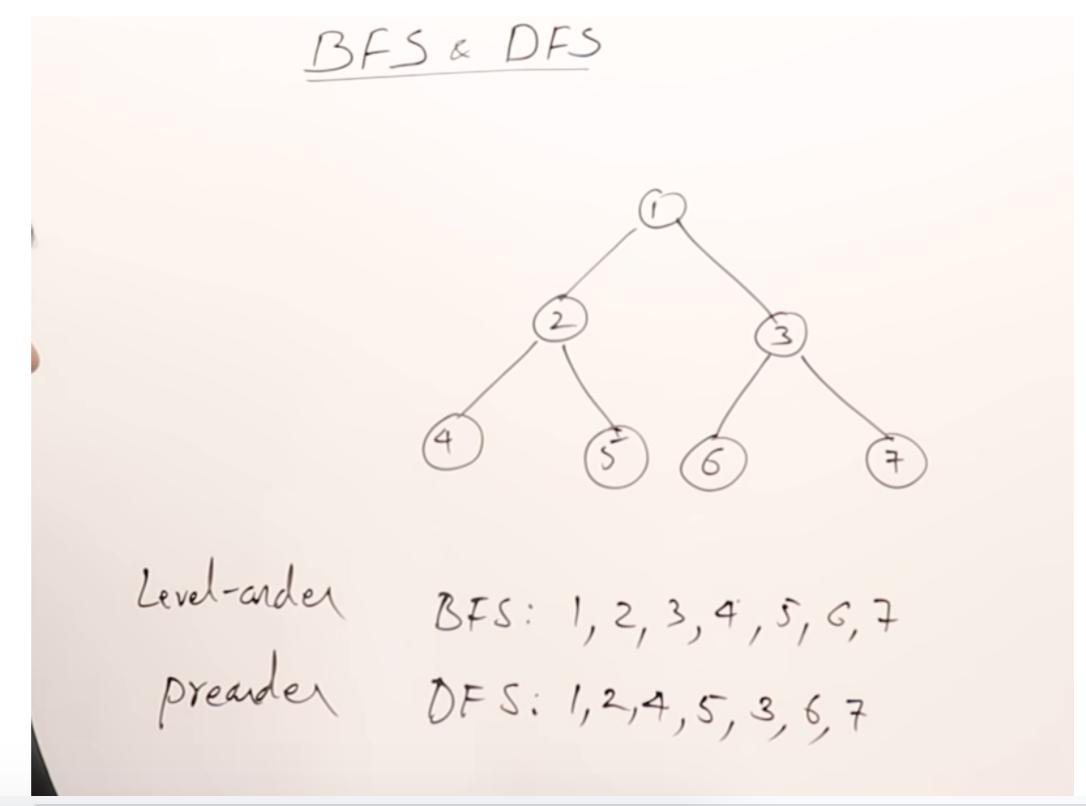 BFS & DFS
1
2
3
4
5
6
7
Level-order BFS: 1, 2, 3, 4, 5, 6, 7
preorder DFS: 1, 2, 4, 5, 3, 6, 7